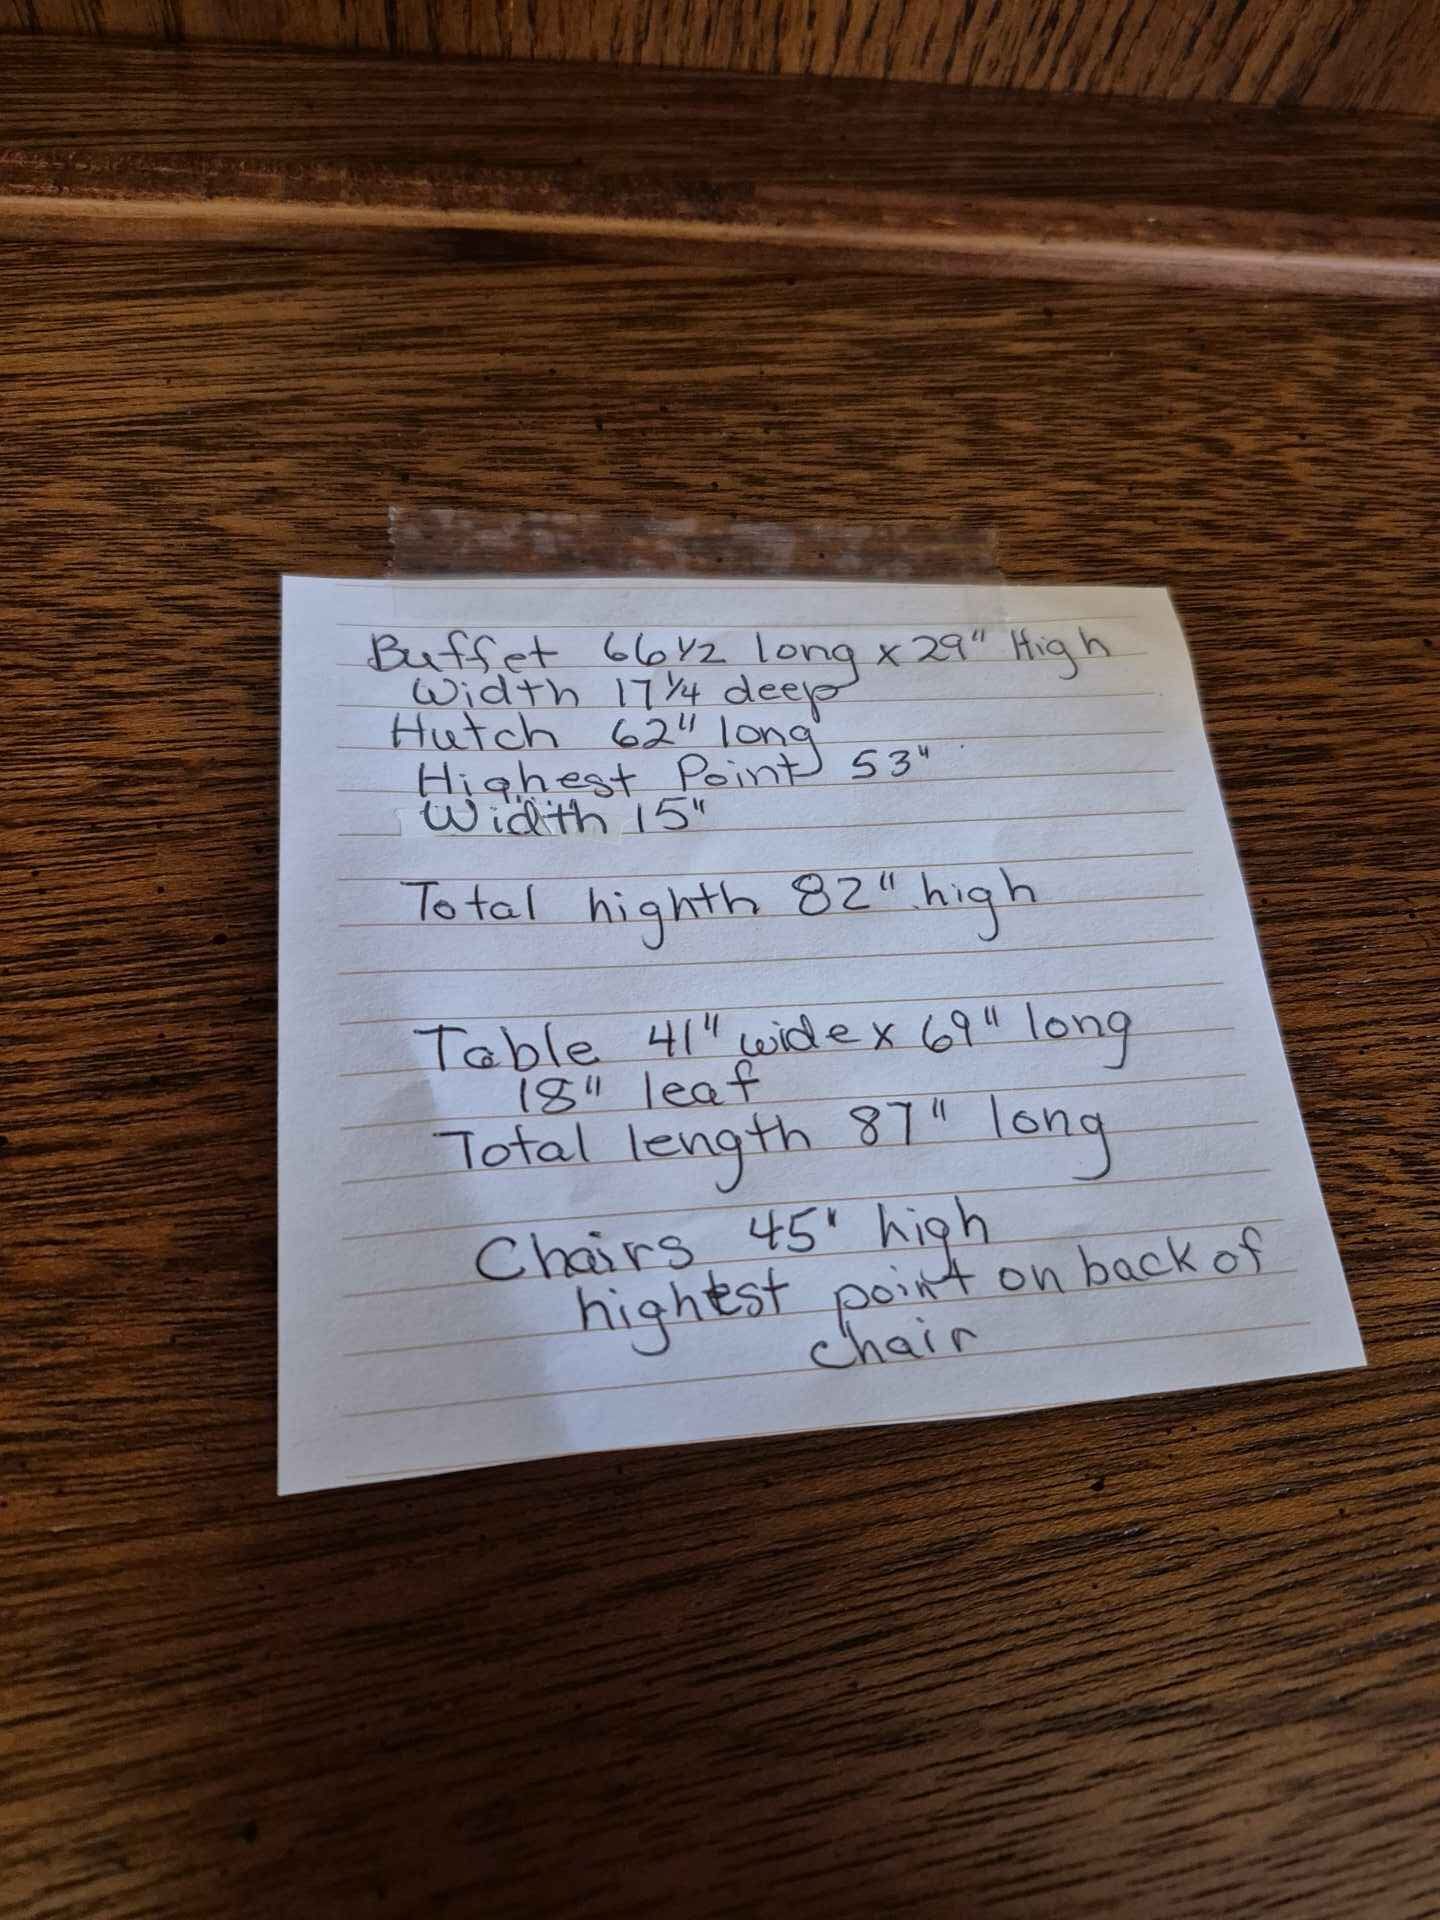 Buffet 66 1/2 long x 29" High
Width 17 1/4 deep
Hutch 62" long
Highest Point 53"
Width 15"
Total highth 82" high
Table 41" wide x 69" long
18" leaf
Total length 87" long
Chairs 45" high
highest point on back of
chair